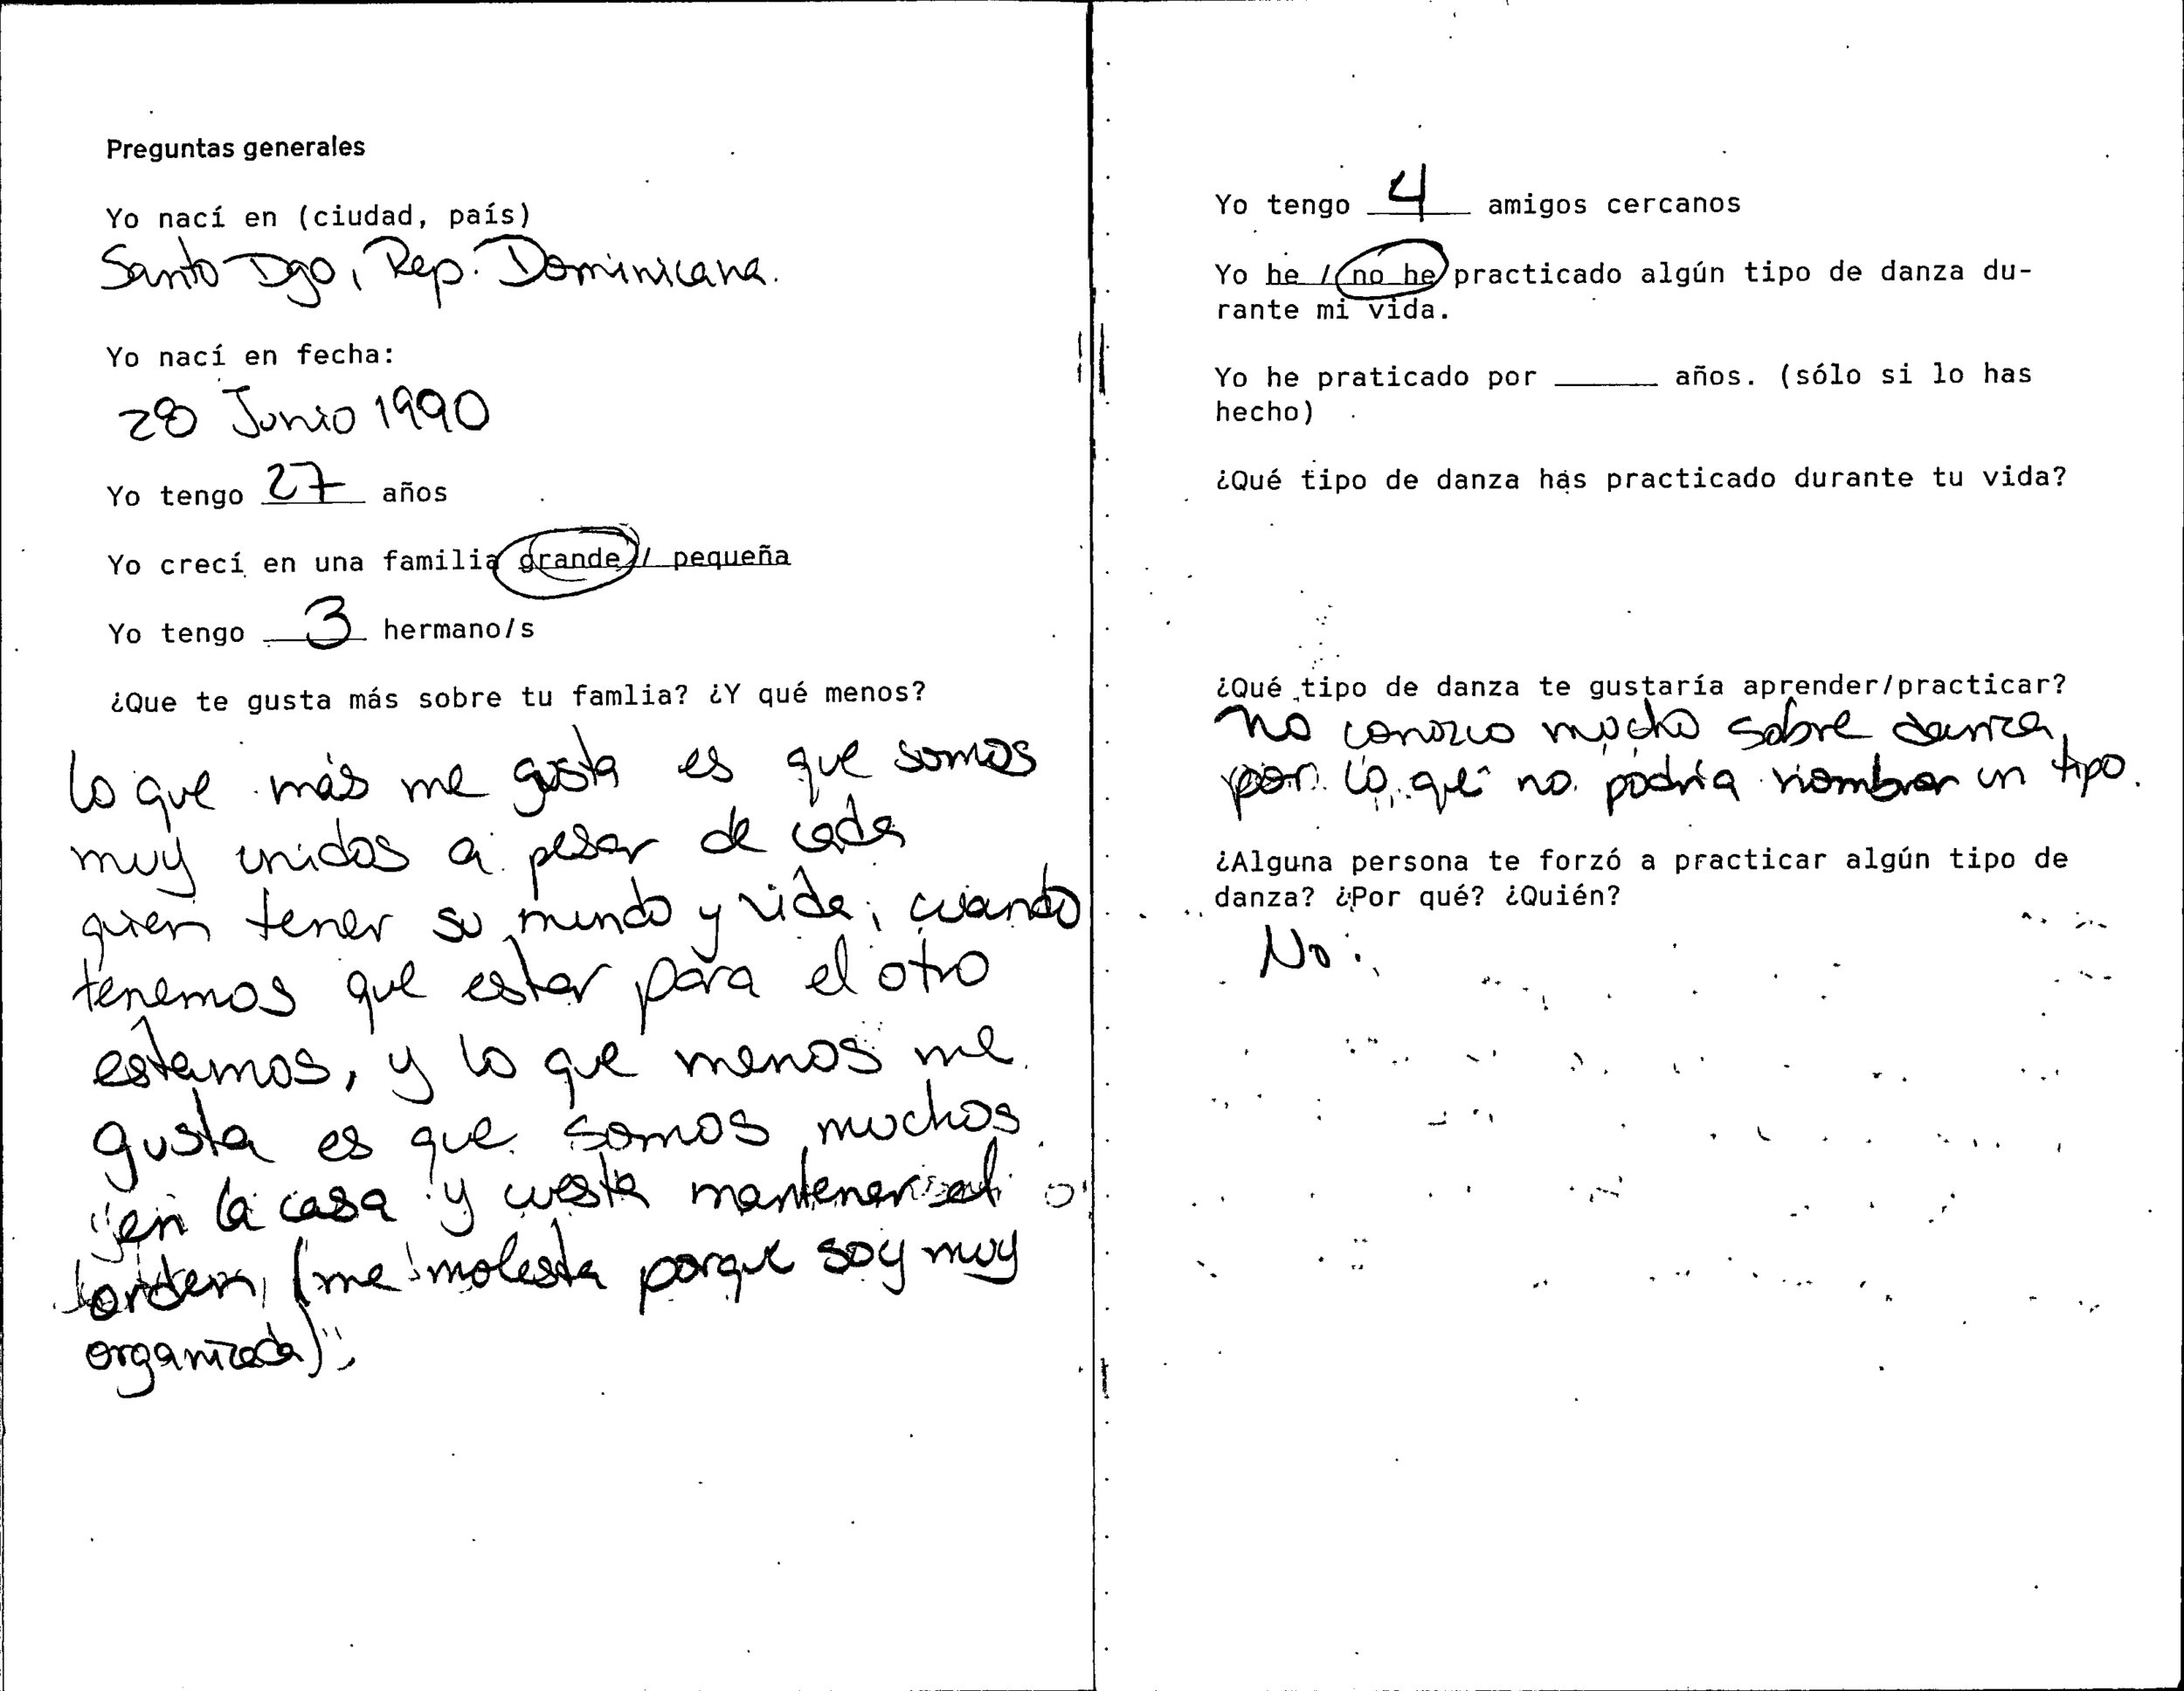 Preguntas generales
Yo nací en (ciudad, país)
Santo Dgo, Rep. Dominicana.
Yo nací en fecha:
28 Junio 1990
Yo tengo 27 años
Yo crecí en una familia grande / pequeña
Yo tengo 3 hermano/s
¿Que te gusta más sobre tu famlia? ¿Y qué menos?
Lo que más me gusta es que somos
muy unidos a pesar de cada
quien tener su mundo y vida, cuando
tenemos que estar para el otro
estamos, y lo que menos me
gusta es que somos muchos
en la casa y cuesta mantener el
orden, (me molesta porque soy muy
organizada).
Yo tengo 4 amigos cercanos
Yo he / no he practicado algún tipo de danza du-
rante mi vida.
Yo he praticado por ______ años. (sólo si lo has
hecho)
¿Qué tipo de danza has practicado durante tu vida?
¿Qué tipo de danza te gustaría aprender/practicar?
No conozco mucho sobre danza,
por lo que no podría nombrar un tipo.
¿Alguna persona te forzó a practicar algún tipo de
danza? ¿Por qué? ¿Quién?
No.